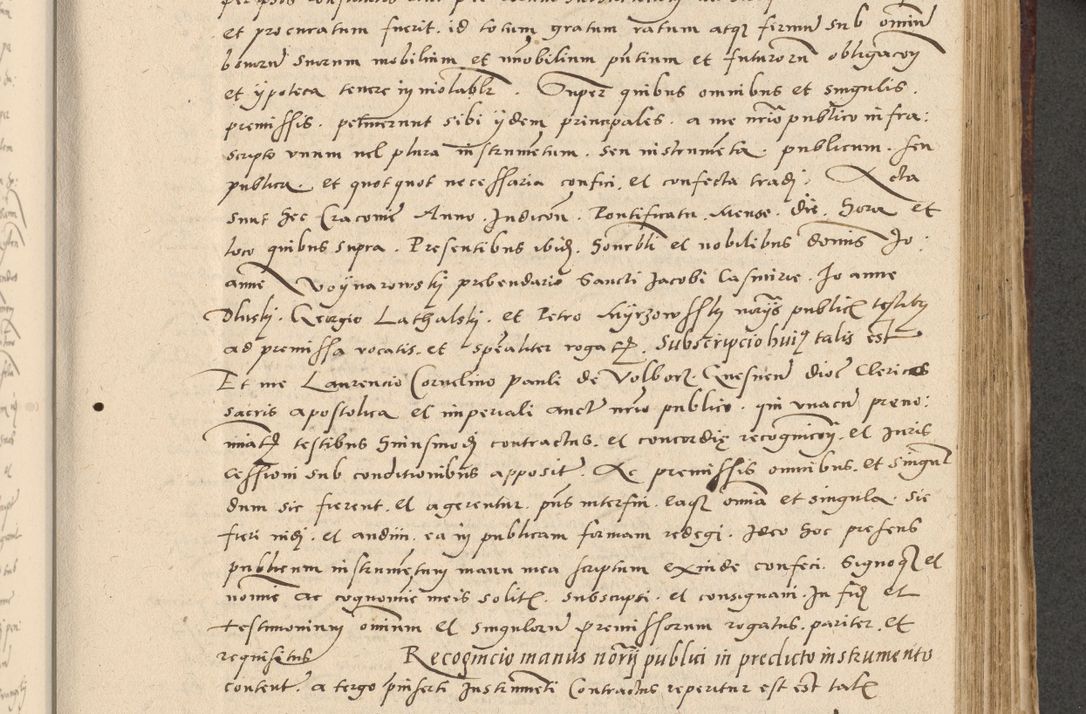 et procuratum fuerit. id totum gratum ratum atq3 firmu sub omni
bonoru suorum mobilium et imobilium pntium et futuroru obligacoy
et ypoteca tenere inviolablr. Super quibus omnibus et singulis.
premissis. petiuerunt sibi ydem principales. a me nrio publico infra:
scripto vnum vel plura instrumetum. seu instrumeta. publicum. seu
publica. et quotquot necessaria confici. et confecta tradj. Acta
sunt hec Cracouie Anno. Indicon. Pontificatu. Mense. die. hora et
loco quibus supra. Presentibus ibid. honrbli et nobilibus domis Jo:
anne Voynarowskij prebendario Sancti Jacobi Casmirie. Joanne
Dluskj. Georgio Lathalskj. et Petro Myrzowsskj noriis publicis testibus
ad premissa vocatis. et spealiter rogatis. Subscripcio huius talis est
Et me Laurencio Cornelino pauli de Volborz. Gnesnen dioc Clerico
sacris apostolica et imperiali auctr nrio publico. qui vnacu preno:
minatis testibus huiusmodj contractus. et concordie recognicoij. et Juris
cessioni sub conditionibus apposit. Ac premissis omnibus. et singul
dum sic fierent. et agerentur. pns interfui. eaq3 omia et singula. sic
fieri vidj. et audiui. ea in publicam formam redegi. Ideo hoc presens
publicum instrumetum manu mea scriptum exinde confeci. Signoq3 et
nomie ac cognomie meis solitis. subscripsi. et consignaui. In fid et
testimonium omium et singuloru premissorum rogatus. pariter. et
requisitus Recognicio manus norij publici in predicto instrumento
content. a tergo pinserti Instrumeti Contractus reperitur est est talis